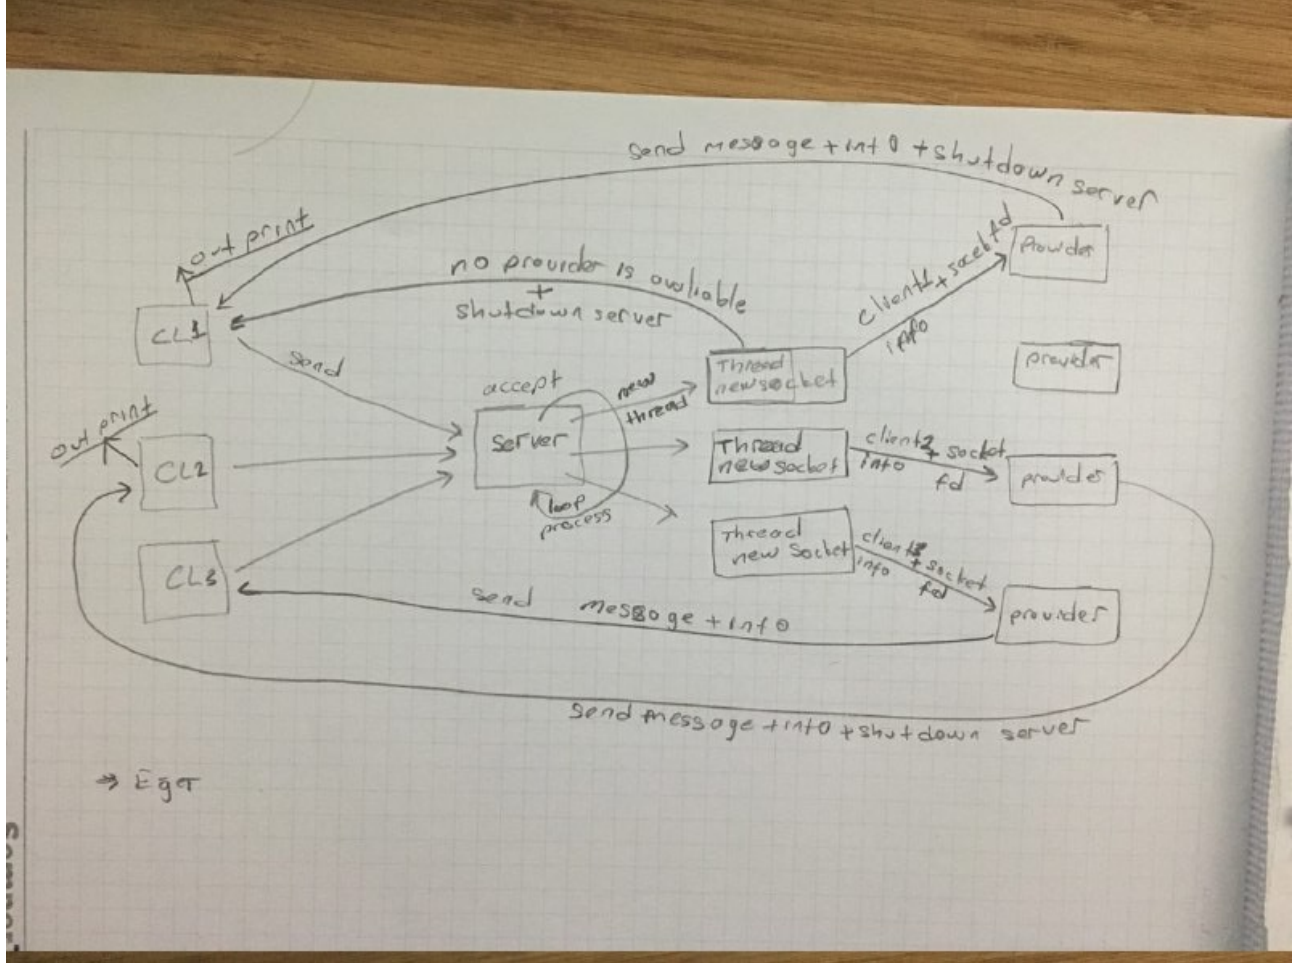 send message + info + shutdown server
out print
no provider is avaliable
+
shutdown server
client1 + socket fd
info
Provider
CL1
send
accept
new
thread
Thread
new socket
provider
out print
CL2
server
loop
process
Thread
new socket
client2 + socket
info
fd
provider
CL3
Thread
new socket
client3 + socket
info
fd
provider
send message + info
send message + info + shutdown server
⇒ Eğer